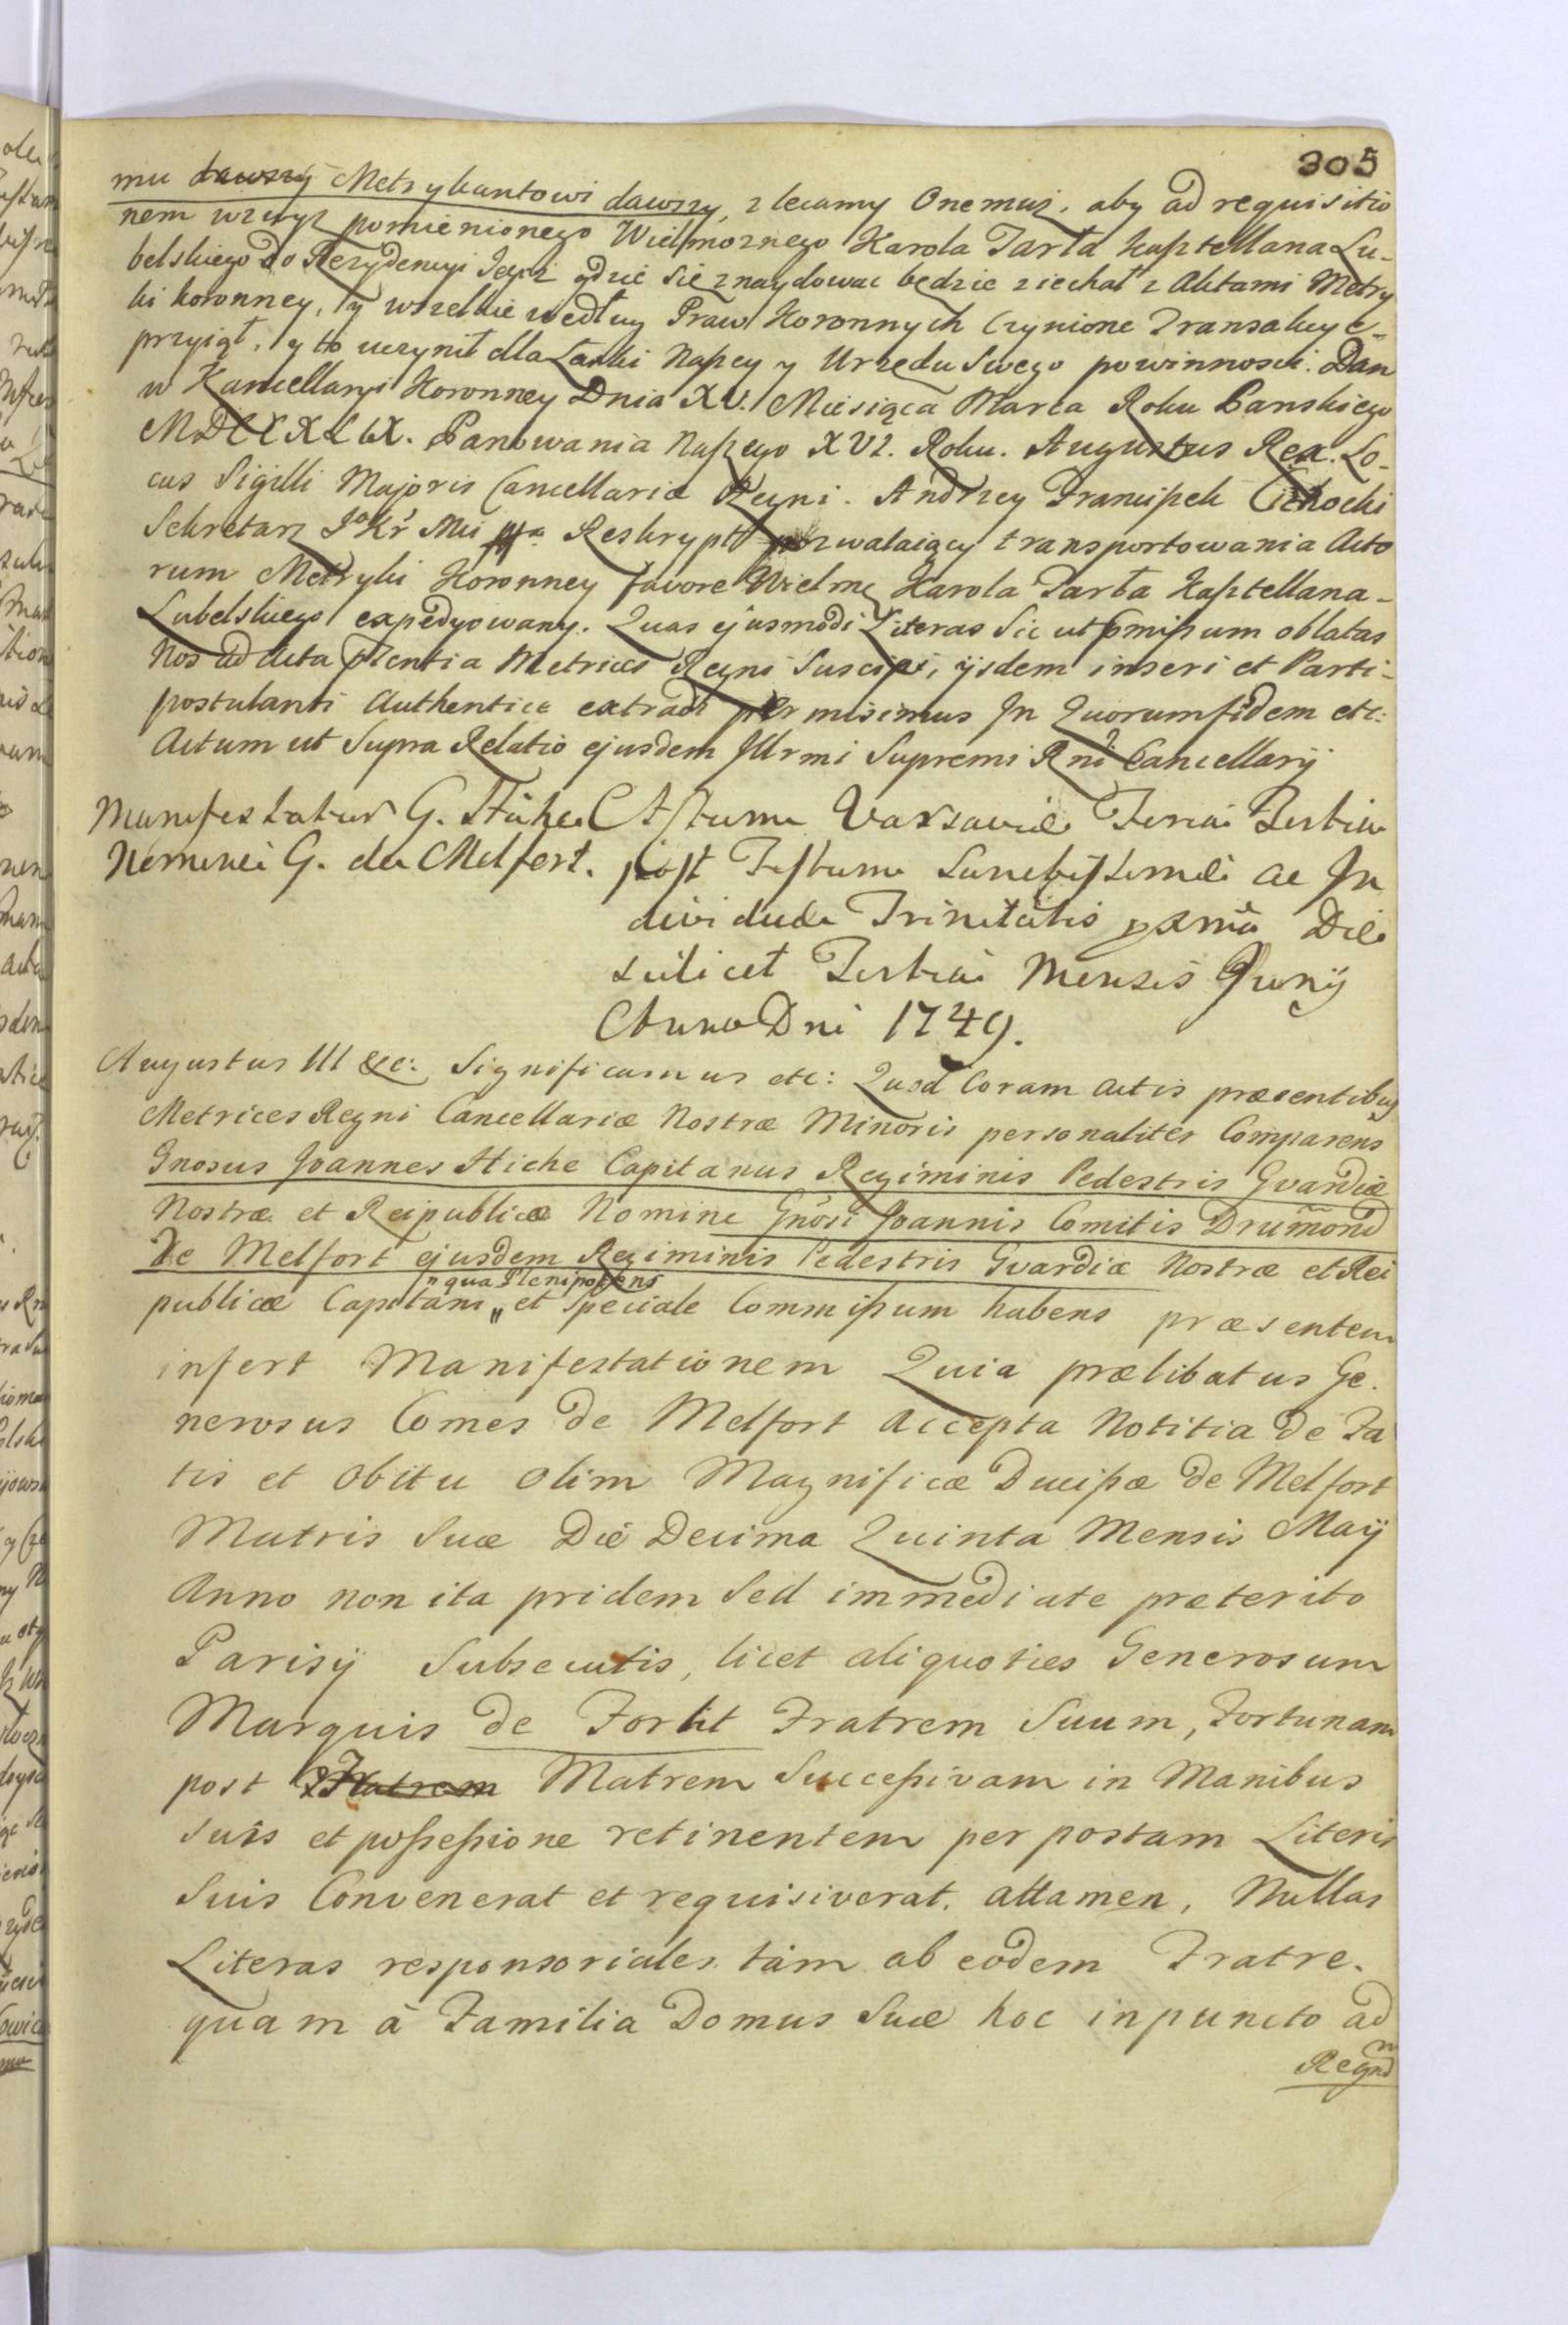 305
mu dawszy Metrykantowi dawszy, zlecamy Onemuż, aby ad requisitio
nem wzwyż pomienionego Wielmożnego Karola Tarła Kasztellana Lu-
belskiego do Rezydencyi Jegoż gdzie się znaydować będzie ziechał z Aktami Metry
ki koronney, y wszelkie według Praw Koronnych Czynione Transakcye-
przyiął, y to uczynił dla Łaski Naszey y Urzędu Swego powinności. Dan
w Kancellaryi Koronney Dnia XV. Miesiąca Marca Roku Panskiego
MDCCXLIX. Panowania Naszego XVI. Roku. Augustus Rex. Lo-
cus Sigilli Majoris Cancellariæ Regni. Andrzey Franciszek Cichocki
Sekretarz Jo Kr Mci Reskrypt pozwalaiący transportowania Acto
rum Metryki Koronney favore Wielmo Karola Tarła Kasztellana-
Lubelskiego expedyowany. Quas ejusmodi Literas Sic ut pmissum oblatas
Nos ad Acta pntia Metrices Regni Suscipi, ijsdem inseri et Parti-
postulanti Authentice extradi permisimus In Quorum fidem etc:
Actum ut Supra Relatio ejusdem Illrmi Supremi Rni Cancellarij
Manifestatur G. Stiche
Nomine G. de Melfort.
Actum Varsaviæ Feria Tertia
post Festum Sanctissimæ ac In
dividuæ Trinitatis pxma Die
scilicet Tertia Mensis Junij
Anno Dni 1749.
Augustus III &c: Significamus etc: Quod Coram Actis præsentibus
Metrices Regni Cancellariæ Nostræ Minoris personaliter Comparens
Gnosus Joannes Stiche Capitanus Regiminis Pedestris Gvardiæ
Nostræ et Reipublicæ Nomine Gnosi Joannis Comitis Drumond
De Melfort ejusdem Regiminis Pedestris Gvardiæ Nostræ et Rei
" qua Plenipotens
publicæ Capitani " et Speciale Commissum habens præsentem
infert Manifestationem Quia prælibatus Ge.
nerosus Comes de Melfort Accepta Notitia de Fa
tis et obitu olim Magnificæ Ducissæ de Melfort
Matris Suæ Die Decima Quinta Mensis Maij
Anno non ita pridem Sed immediate præterito
Parisij Subsecutis, licet aliquoties Generosum
Marquis de Fortit Fratrem Suum, Fortunam
post Fratrem Matrem Successivam in Manibus
Suis et possessione retinentem per postam Literis
Suis Convenerat et requisiverat. attamen, Nullas
Literas responsoriales tam ab eodem Fratre.
quam à Familia Domus Suæ hoc in puncto ad
Regnm